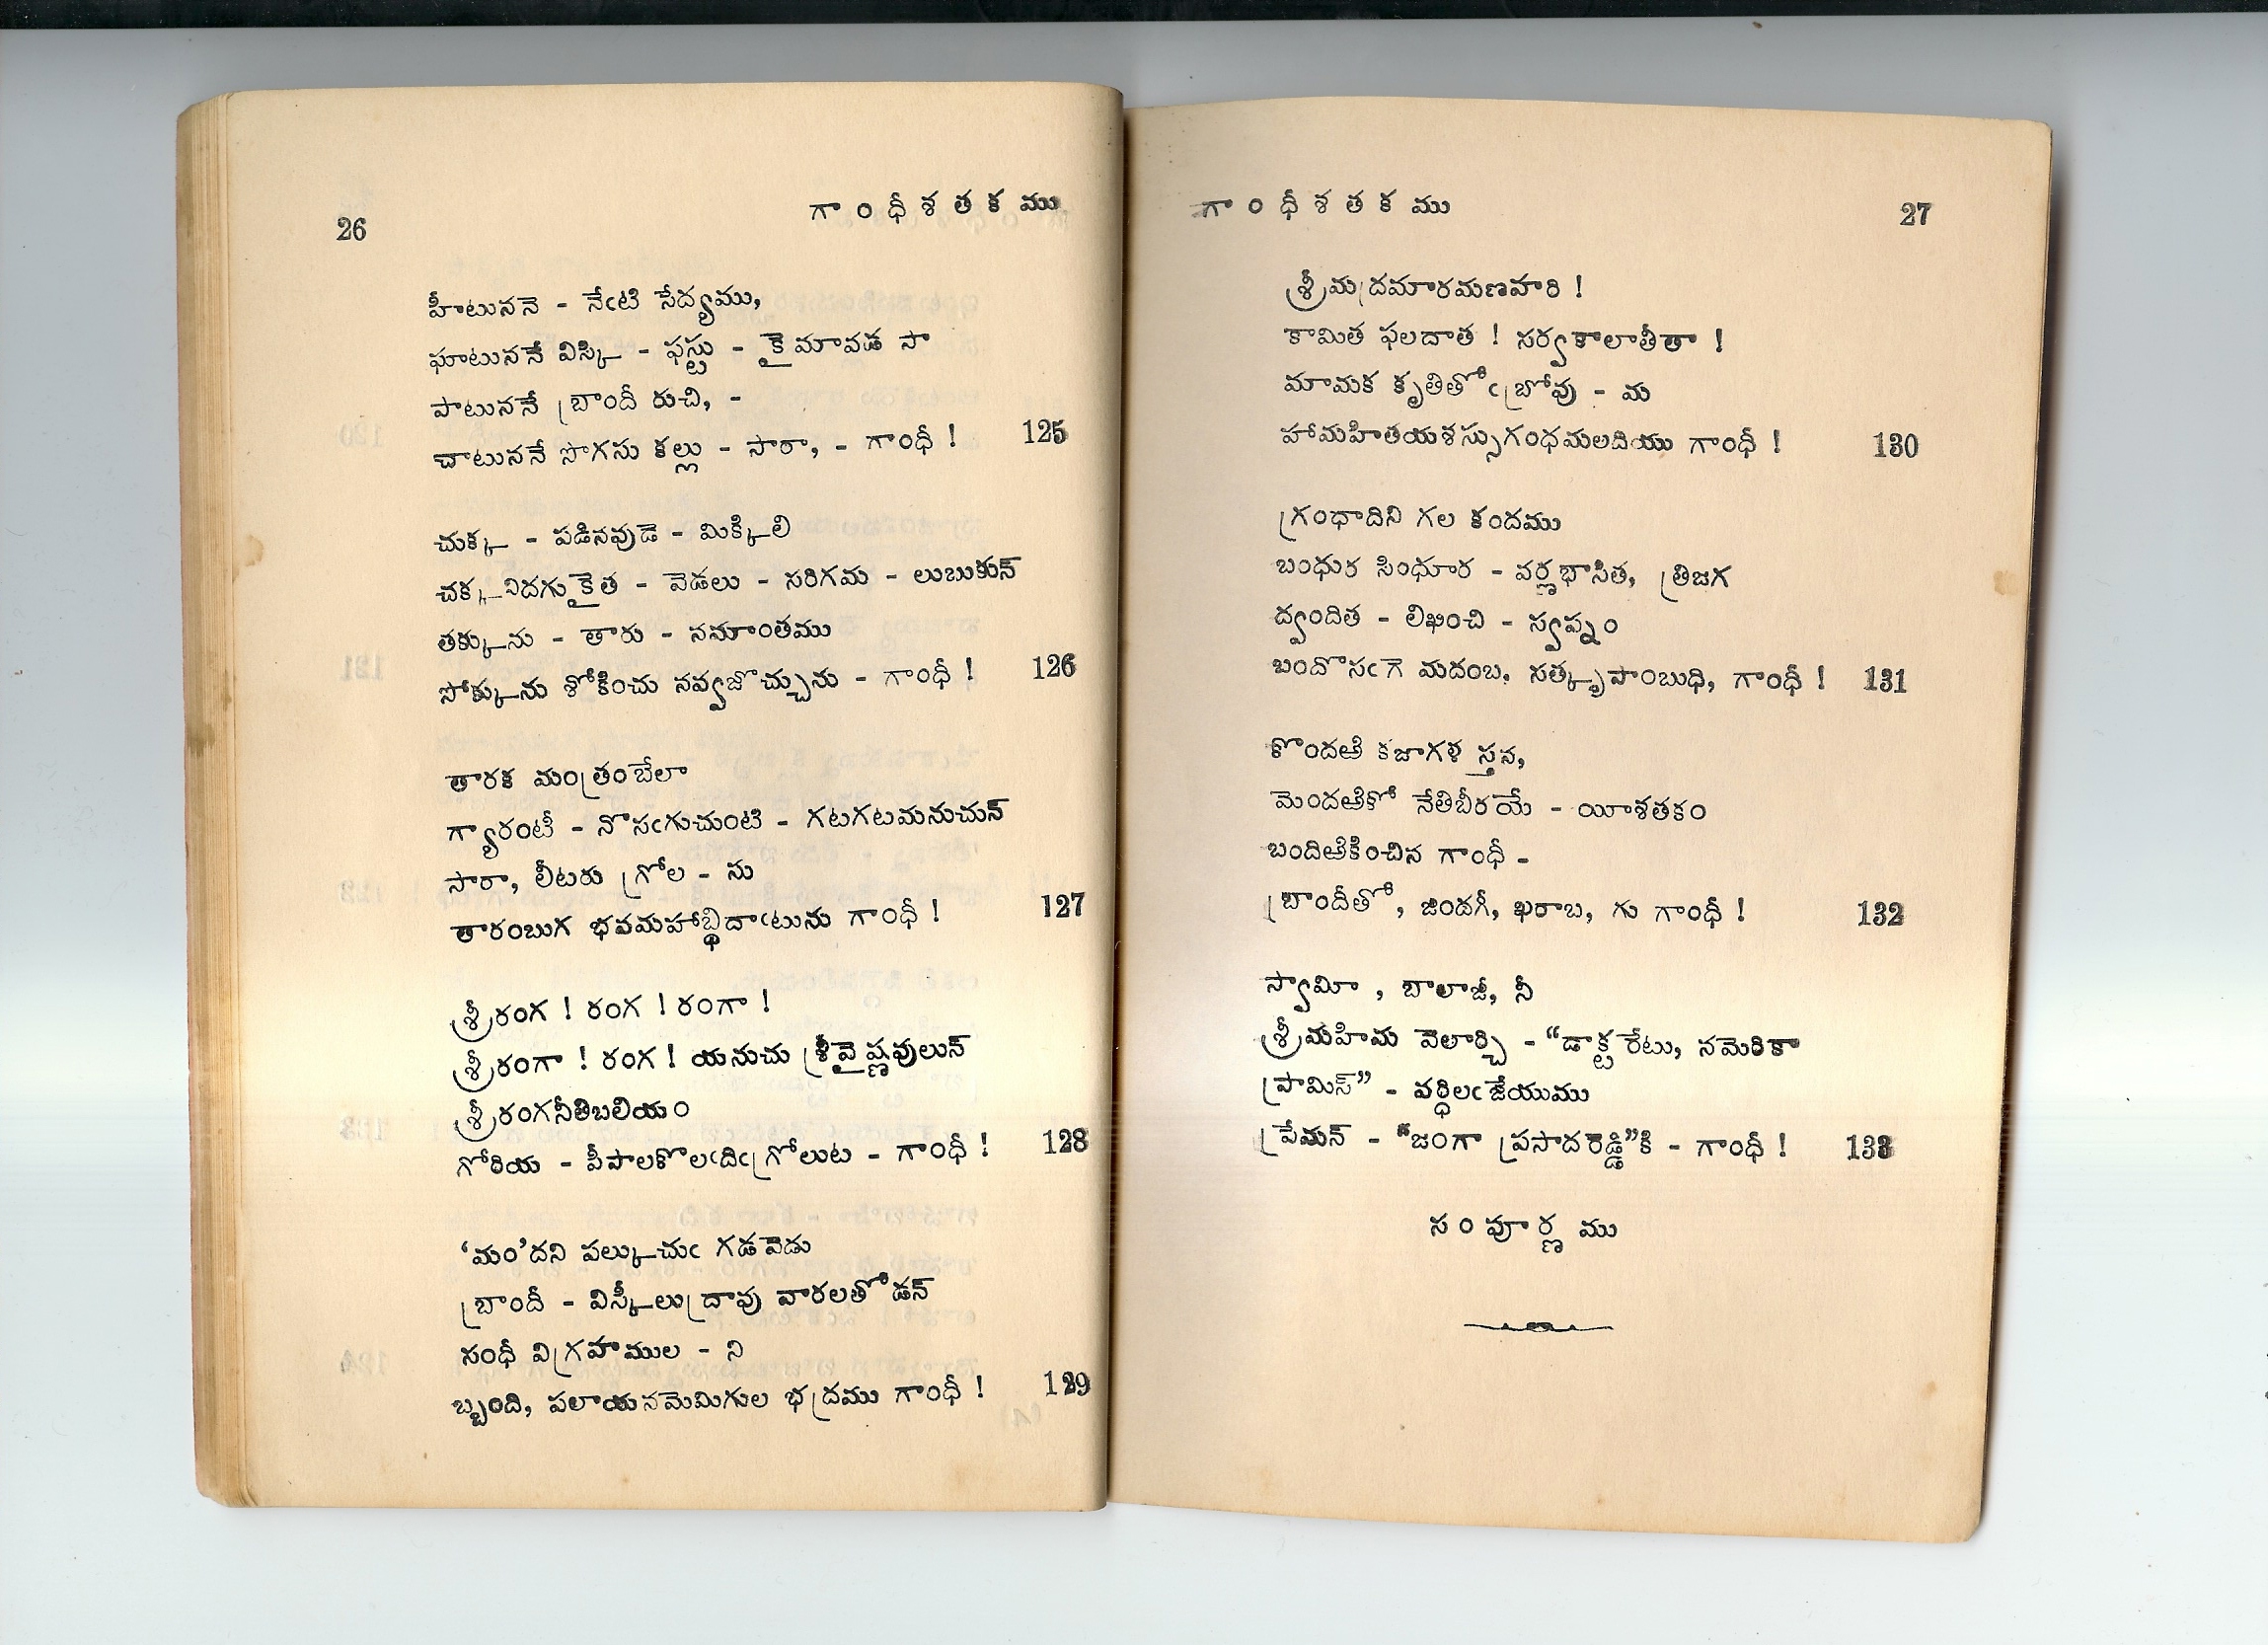 26
గాంధీశతకము
హీటుననె - నేఁటి సేద్యము,
ఘాటుననే విస్కి - ఫస్టు - కైమావడ సా
పాటుననే బ్రాందీ రుచి, -
చాటుననే సొగసు కల్లు - సారా, - గాంధీ ! 125
చుక్క - పడినవుడె - మిక్కిలి
చక్కనిదగు కైత - వెడలు - సరిగమ - లుబుకున్
తక్కును - తారు - నమాంతము
సోక్కును శోకించు నవ్వజొచ్చును - గాంధీ ! 126
తారక మంత్రంబేలా
గ్యారంటీ - నొసఁగుచుంటి - గటగటమనుచున్
సారా, లీటరు గ్రోల - సు
తారంబుగ భవమహాబ్ధిదాఁటును గాంధీ ! 127
శ్రీరంగ ! రంగ ! రంగా !
శ్రీరంగా ! రంగ ! యనుచు శ్రీవైష్ణవులున్
శ్రీరంగనీతిబలియం
గోరియ - పీపాలకొలఁదిఁ గ్రోలుట - గాంధీ ! 128
‘మం’దని పల్కుచుఁ గడవెడు
బ్రాందీ - విస్కీలు ద్రావు వారలతోడన్
సంధీ విగ్రహముల - ని
బ్బంది, పలాయనమెమిగుల భద్రము గాంధీ ! 129
గాంధీశతకము
27
శ్రీమద్రమారమణహరి !
కామిత ఫలదాత ! సర్వకాలాతీతా !
మామక కృతితోఁ బ్రోవు - మ
హామహితయశస్సుగంధమలదియు గాంధీ ! 130
గ్రంధాదిని గల కందము
బంధుర సింధూర - వర్ణభాసిత, త్రిజగ
ద్వందిత - లిఖించి - స్వప్నం
బందొసఁగె మదంబ, సత్కృపాంబుధి, గాంధీ ! 131
కొందఱి కజాగళ స్తన,
మెందఱికో నేతిబీరయే - యీశతకం
బందిఱికించిన గాంధీ -
బ్రాందీతో, జిందగీ, ఖరాబ, గు గాంధీ ! 132
స్వామీ , బాలాజీ, నీ
శ్రీమహిమ వెలార్చి - “డాక్టరేటు, నమెరికా
ప్రామిస్” - వర్ధిలఁ జేయుము
ప్రేమన్ - “జంగా ప్రసాదరెడ్డి”కి - గాంధీ ! 133
సంపూర్ణము